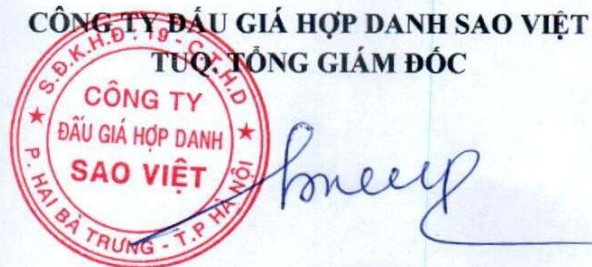 CÔNG TY ĐẤU GIÁ HỢP DANH SAO VIỆT
TUQ. TỔNG GIÁM ĐỐC
S.Đ.K.H.Đ: 19 - C.T.H.D
CÔNG TY
ĐẤU GIÁ HỢP DANH
SAO VIỆT
P. HAI BÀ TRƯNG - T.P HÀ NỘI